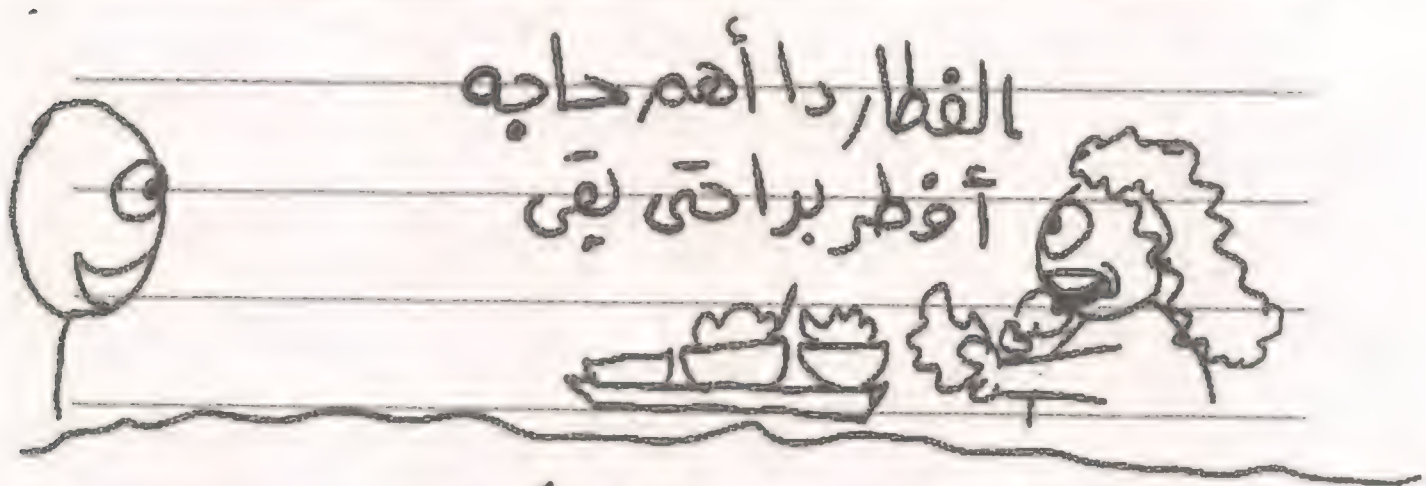 الفطار دا أهم حاجه
أفطر براحتى بقى